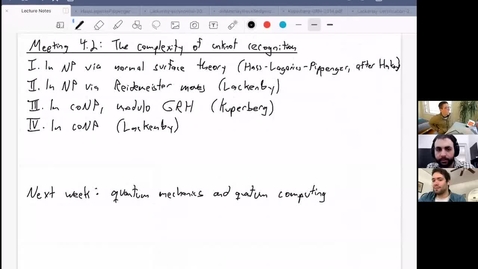 Lecture Notes
Meeting 4.2: The complexity of unknot recognition
I. In NP via normal surface theory (Hass-Lagarias-Pippenger, after Haken)
II. In NP via Reidemeister moves (Lackenby)
III. In coNP, modulo GRH (Kuperberg)
IV. In coNP (Lackenby)
Next week: quantum mechanics and quantum computing